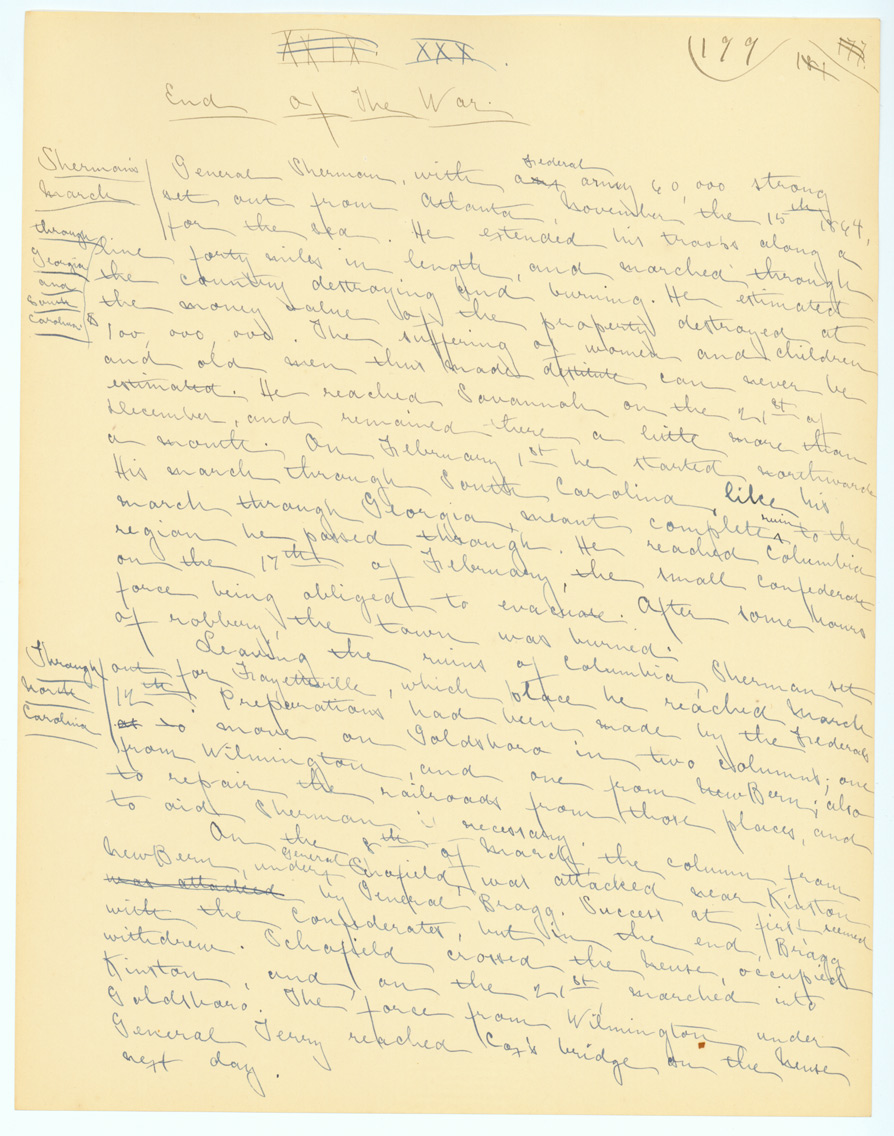 XXIX XXX.
199 181 177
End of The War.
Sherman's
March
through
Georgia
and
South
Carolina
General Sherman, with a federal army 60,000 strong
set out from Atlanta, November the 15th 1864,
for the sea. He extended his troops along a
line forty miles in length, and marched through
the country destroying and burning. He estimated
the money value of the property destroyed at
$100,000,000. The suffering of women and children
and old men thus made destitute can never be
estimated. He reached Savannah on the 21st of
December, and remained there a little more than
a month. On February 1st he started northward
His march through South Carolina, like his
march through Georgia, meant complete ruin to the
region he passed through. He reached Columbia
on the 17th of February, the small Confederate
force being obliged to evacuate. After some hours
of robbery, the town was burned.
Through
North
Carolina
Leaving the ruins of Columbia, Sherman set
out for Fayetteville, which place he reached March
12th. Preparations had been made by the Federals
at to move on Goldsboro in two columns; one
from Wilmington, and one from NewBern; also
to repair the railroads from those places, and
to aid Sherman if necessary.
On the 8th of March, the column from
NewBern, under General Schofield, was attacked near Kinston
was attacked by General Bragg. Success at first seemed
with the Confederates, but in the end, Bragg
withdrew. Schofield crossed the Neuse, occupied
Kinston, and, on the 21st marched into
Goldsboro. The force from Wilmington under
General Terry reached Cox's bridge on the Neuse
next day.